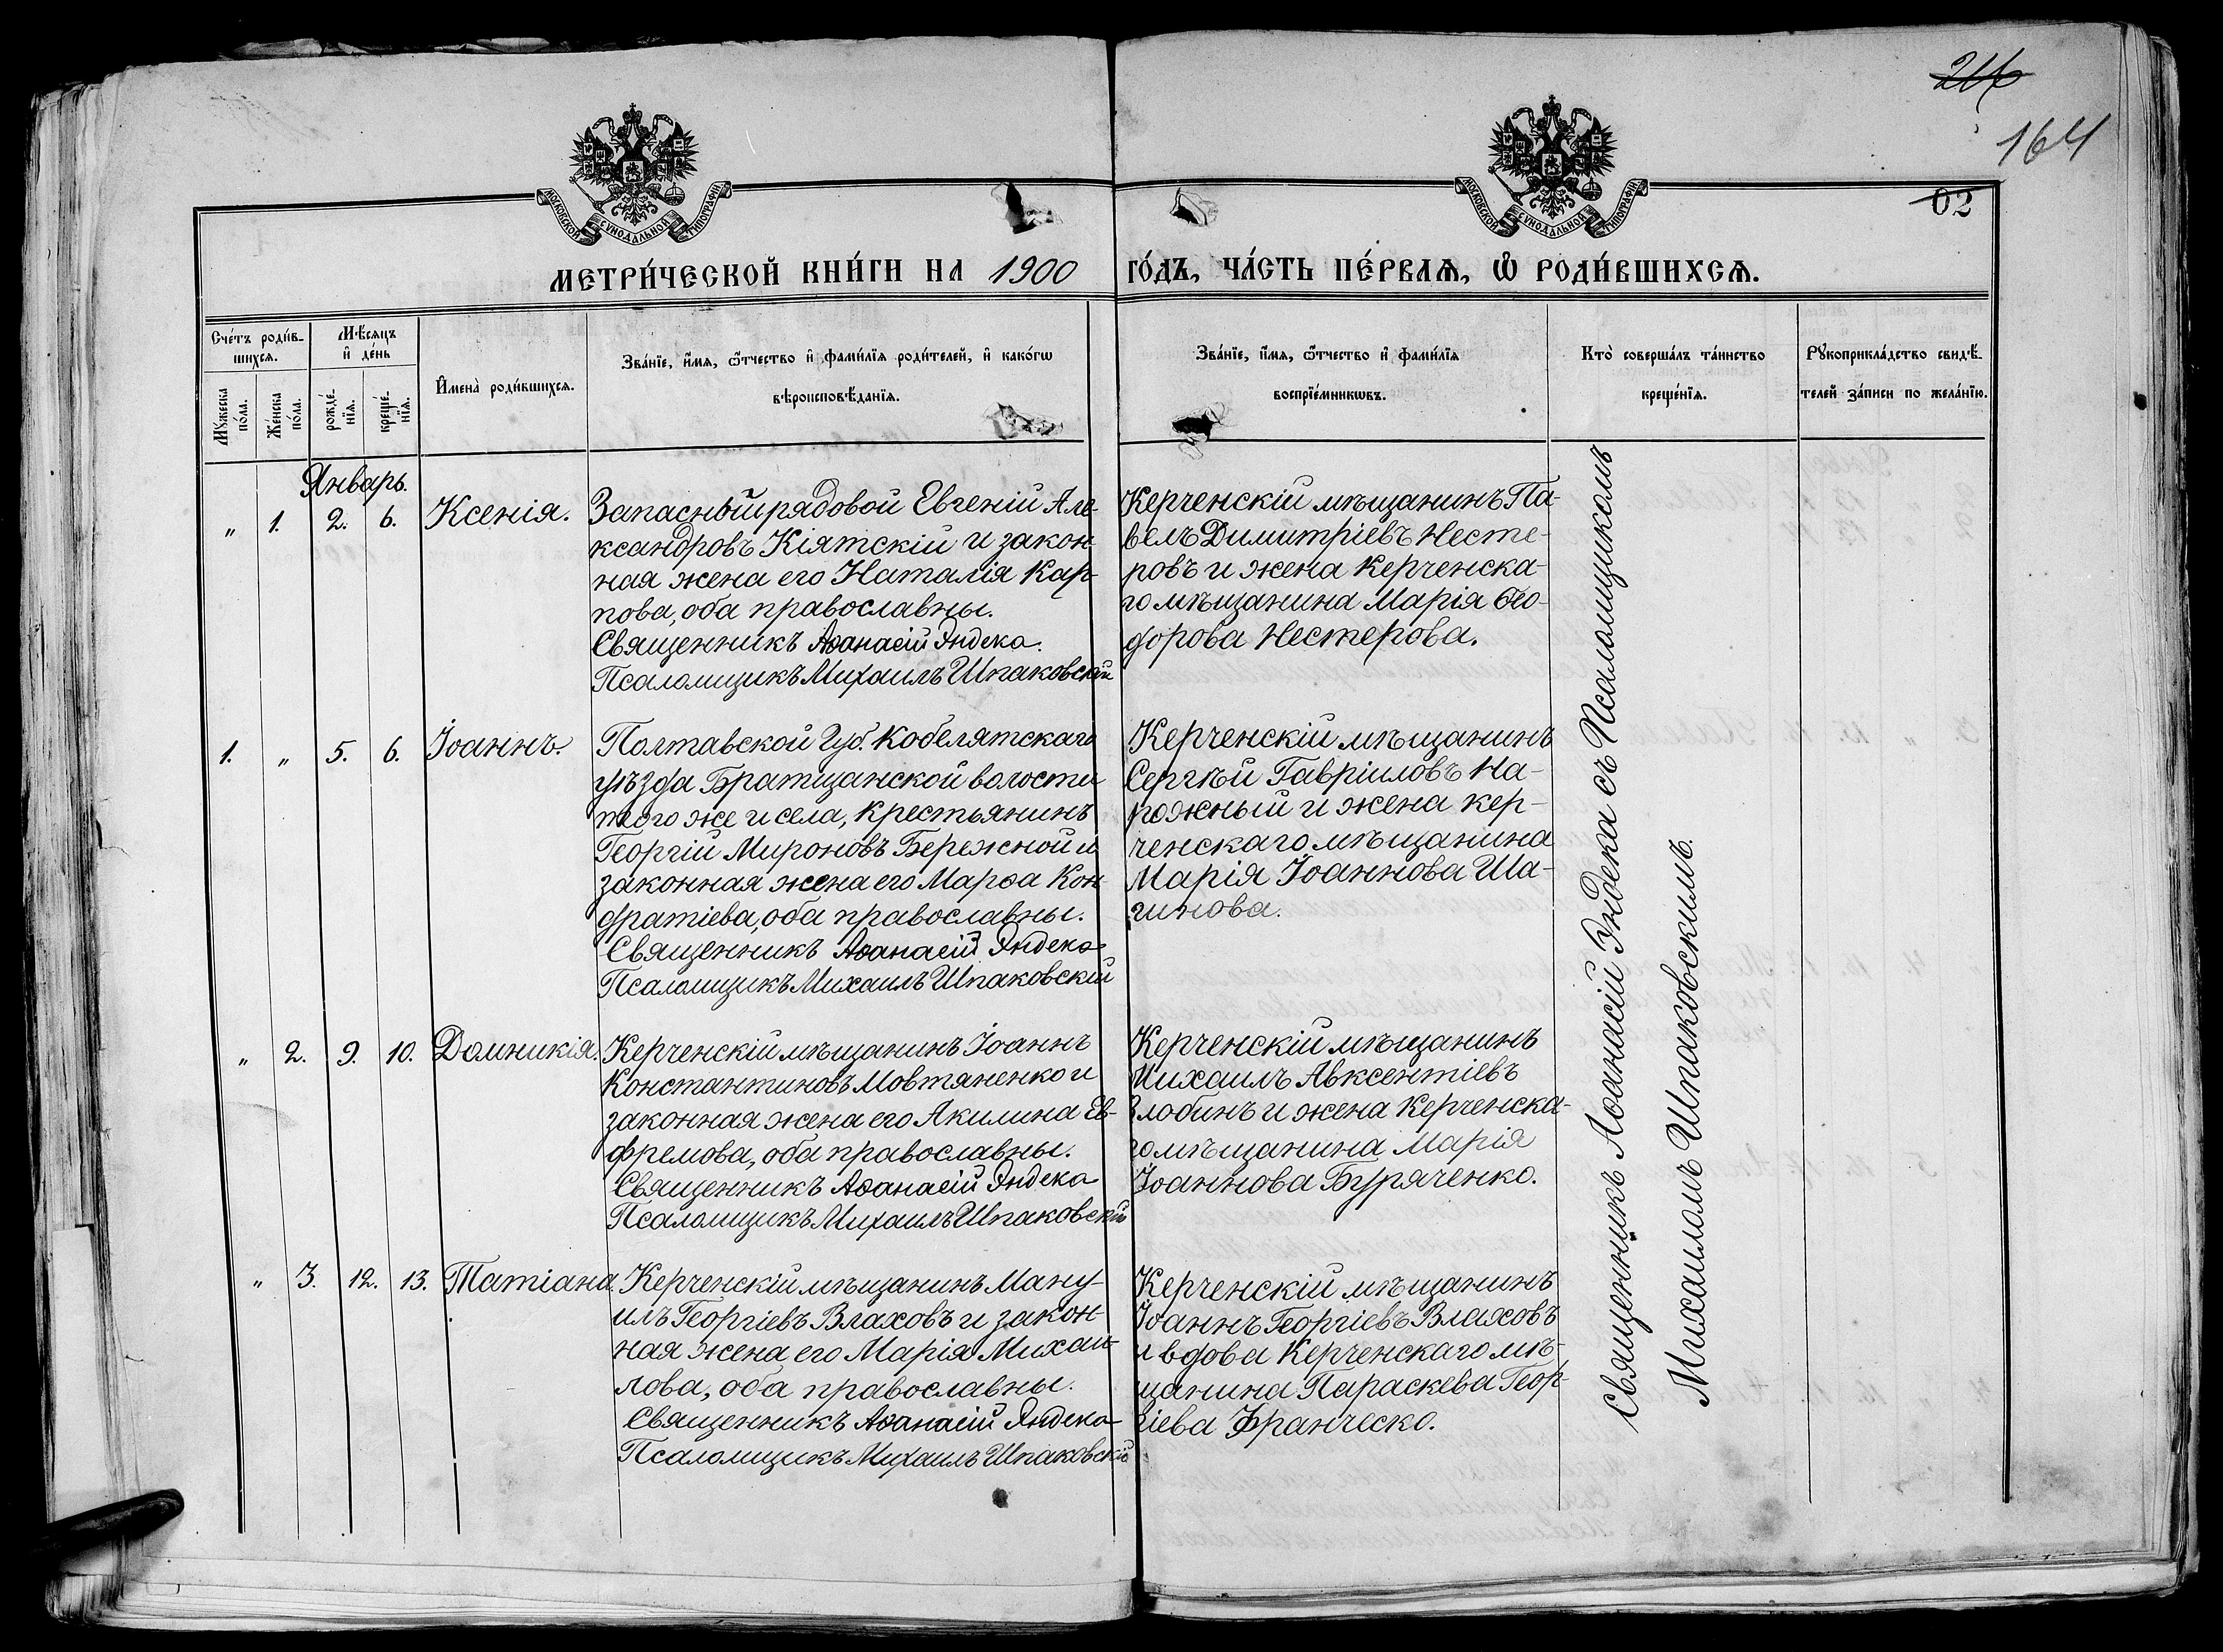 216
164
02
МОСКОВСКОЙ СѴНОДАЛЬНОЙ ТИПОГРАФІИ
МОСКОВСКОЙ СѴНОДАЛЬНОЙ ТИПОГРАФІИ
МЕТРИ́ЧЕСКОЙ КНИ́ГИ НА 1900 ГО́ДЪ, ЧА́СТЬ ПЕ́РВАѦ, Ѡ҆ РОДИ́ВШИХСѦ.
Сче́тъ роди́в-
шихсѧ.
Мꙋ́жеска
по́ла.
Же́нска
по́ла.
Мѣ́сѧцъ
и҆ де́нь
рожде́-
нїѧ.
креще́-
нїѧ.
И҆мена̀ роди́вшихсѧ.
Зва́нїе, и҆́мѧ, ѻ҆́тчество и҆ фами́лїѧ роди́телей, и҆ како́гѡ
вѣроисповѣ́данїѧ.
Зва́нїе, и҆́мѧ, ѻ҆́тчество и҆ фами́лїѧ
воспрїе́мникѡвъ.
Кто̀ соверша́лъ та́инство
креще́нїѧ.
Рꙋкоприкла́дство свидѣ́-
телей за́писи по жела́нїю.
Январь.
" 1. 2. 6. Ксенія.
Запасный рядовой Евгеній Але-
ксандровъ Кіятскій и закон-
ная жена его Наталія Кар-
пова, оба православны.
Священникъ Аѳанасій Эндека.
Псаломщикъ Михаилъ Шпаковскій
Керченскій мѣщанинъ Па-
велъ Димитріевъ Несте-
ровъ и жена Керченска-
го мѣщанина Марія Ѳео-
дорова Нестерова.
1. " 5. 6. Іоаннъ.
Полтавской Губ. Кобелятскаго
уѣзда Братщанской волости
того же и села, крестьянинъ
Георгій Мироновъ Бережной и
законная жена его Марѳа Кон-
дратіева, оба православны.
Священникъ Аѳанасій Эндека
Псаломщикъ Михаилъ Шпаковскій
Керченскій мѣщанинъ
Сергѣй Гавріиловъ На-
рожный и жена кер-
ченскаго мѣщанина
Марія Іоаннова Ша-
гинова.
" 2. 9. 10. Домникія.
Керченскій мѣщанинъ Іоаннъ
Константиновъ Мовтяненко и
законная жена его Акилина Ев-
фремова, оба православны.
Священникъ Аѳанасій Эндека
Псаломщикъ Михаилъ Шпаковскій
Керченскій мѣщанинъ
Михаилъ Авксентіевъ
Злобинъ и жена Керченска-
го мѣщанина Марія
Іоаннова Буряченко.
" 3. 12. 13. Татіана.
Керченскій мѣщанинъ Ману-
илъ Георгіевъ Влаховъ и закон-
ная жена его Марія Михаи-
лова, оба православны.
Священникъ Аѳанасій Эндека
Псаломщикъ Михаилъ Шпаковскій
Керченскій мѣщанинъ
Іоаннъ Георгіевъ Влаховъ
и вдова Керченскаго мѣ-
щанина Параскева Геор-
гіева Франческо.
Священникъ Аѳанасій Эндека съ Псаломщикомъ
Михаиломъ Шпаковскимъ.